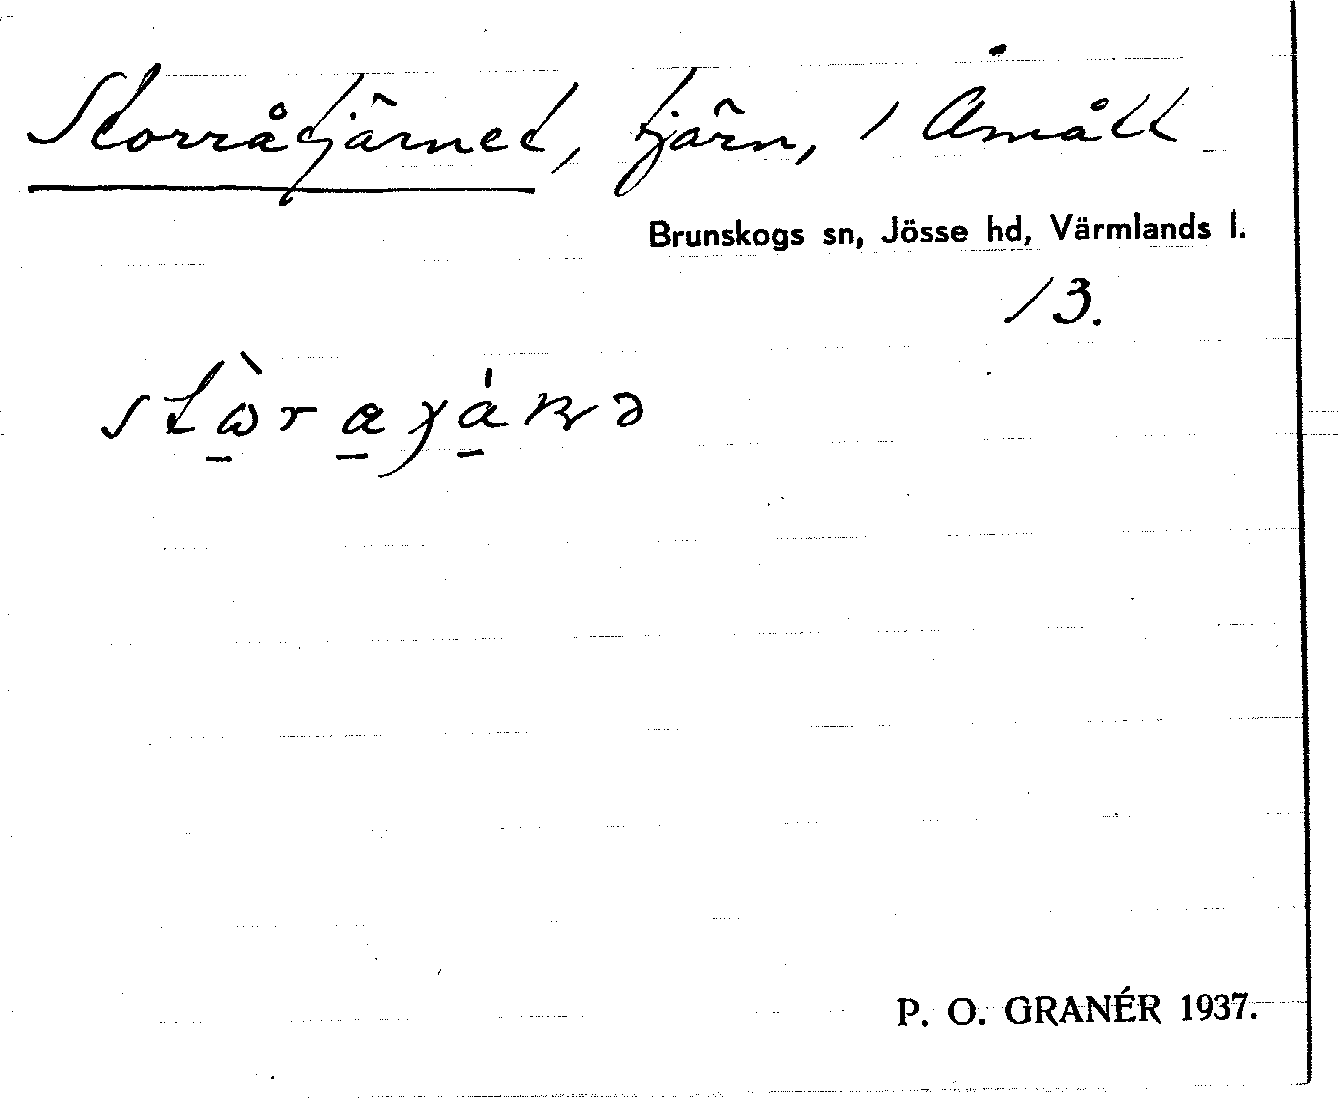 Storråtjärnet, tjärn, / Åmått
Brunskogs sn, Jösse hd, Värmlands l.
13.
P. O. GRANÉR 1937.